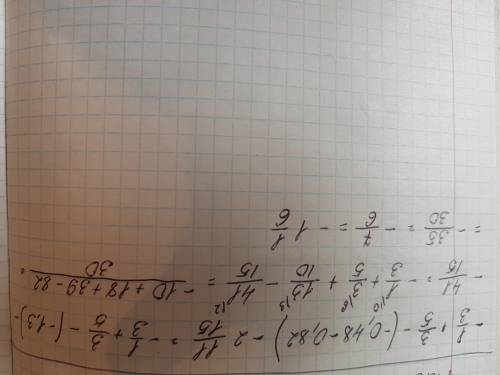 -1/3 + 3/5 - (-0,48 - 0,82) - 2 11/15 = -1/3 + 3/5 - (-1,3) -
- 41/15 = -1/3 (10 + 3/5 (6 + 13/10 (3 - 41/15 (2 = -10 + 18 + 39 - 82/30 =
= -35/30 = -7/6 = -1 1/6